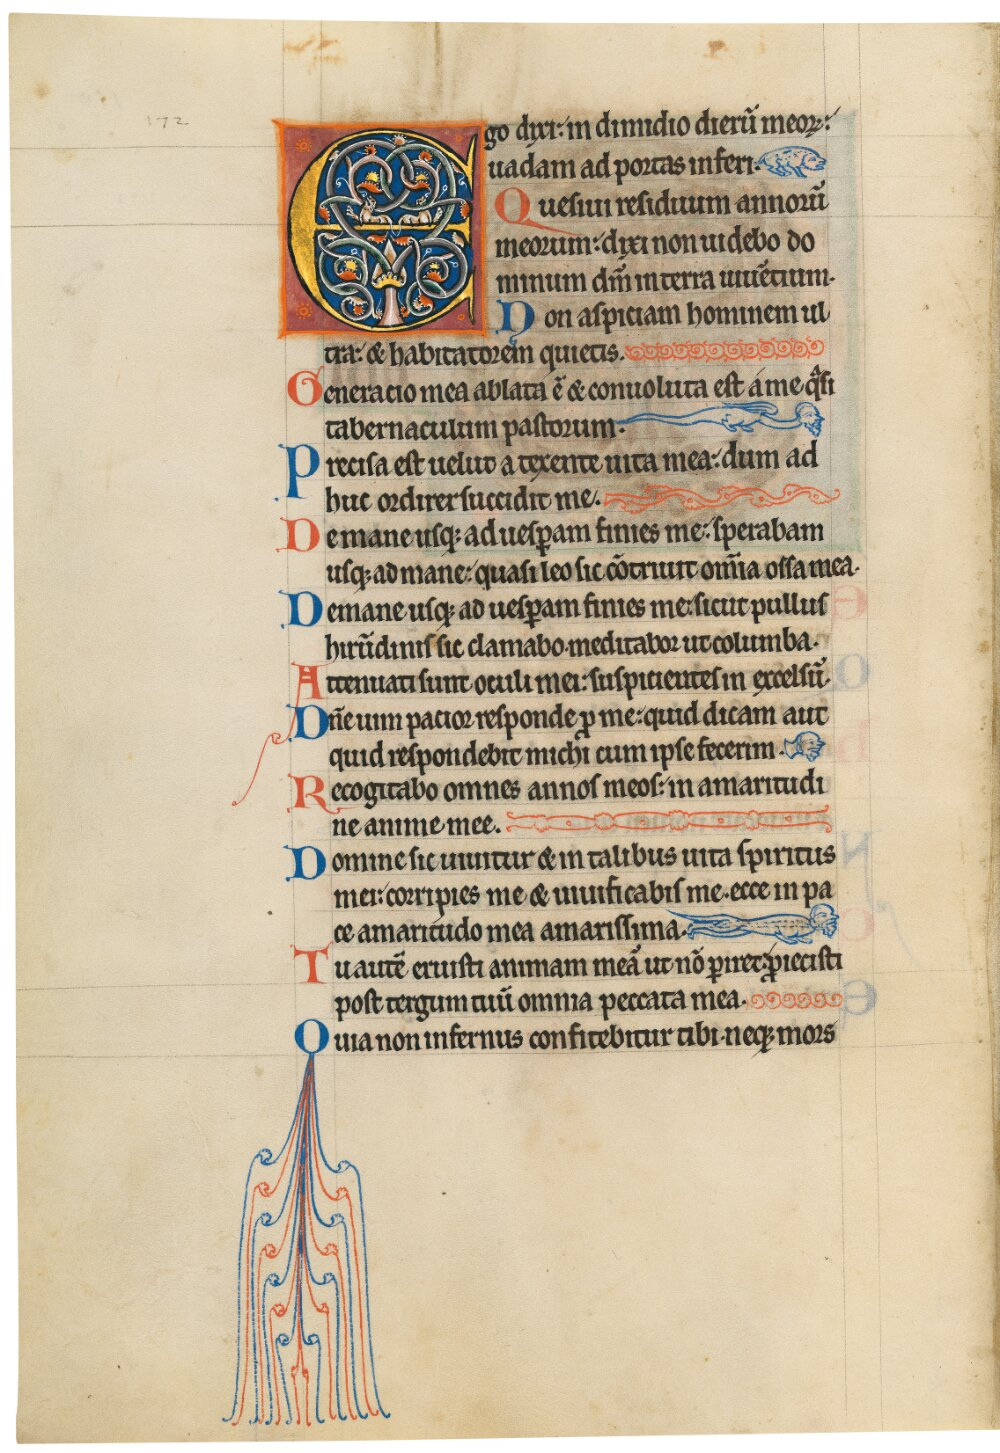 172
Ego dixi: in dimidio dierũ meoꝝ:
uadam ad portas inferi.
Quesiui residuum annorũ
meorum: dixi non uidebo do
minum dm̃ in terra uiuẽtium.
Non aspiciam hominem ul
tra: & habitatorem quietis.
Generacio mea ablata ẽ & conuoluta est a me qͣsi
tabernaculum pastorum.
Precisa est uelud a texente uita mea: dum ad
huc ordirer succidit me.
De mane usqꝫ ad uesꝑam finies me: sperabam
usqꝫ ad mane: quasi leo sic cõtriuit om̃ia ossa mea.
De mane usqꝫ ad uesꝑam finies me: sicut pullus
hirũdinis sic clamabo. meditabor ut columba.
Attenuati sunt oculi mei: suspicientes in excelsũ.
Dñe uim pacior responde ꝓ me: quid dicam aut
quid respondebit michi cum ipse fecerim.
Recogitabo omnes annos meos: in amaritudi
ne anime mee.
Domine sic uiuitur & in talibus uita spiritus
mei: corripies me & uiuificabis me. ecce in pa
ce amaritudo mea amarissima.
Tu autẽ eruisti animam meã ut nõ ꝑiret: ꝓiecisti
post tergum tuũ omnia peccata mea.
Quia non infernus confitebitur tibi. neqꝫ mors